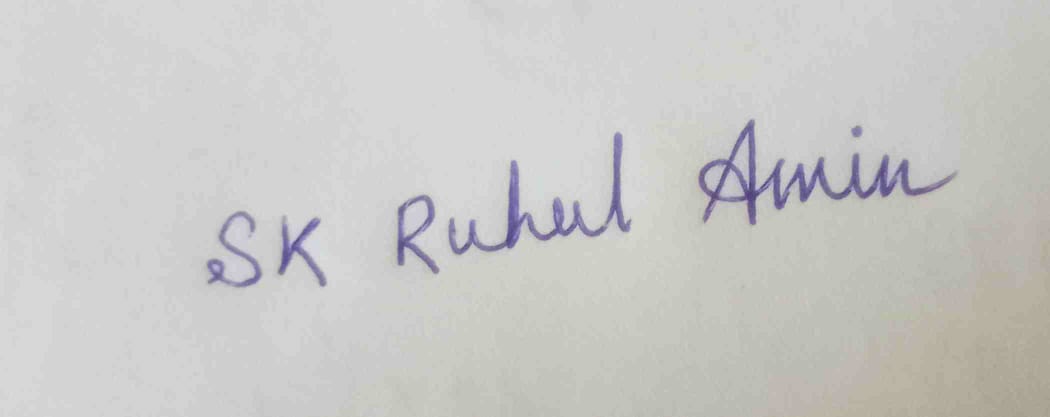 SK Ruhul Amin